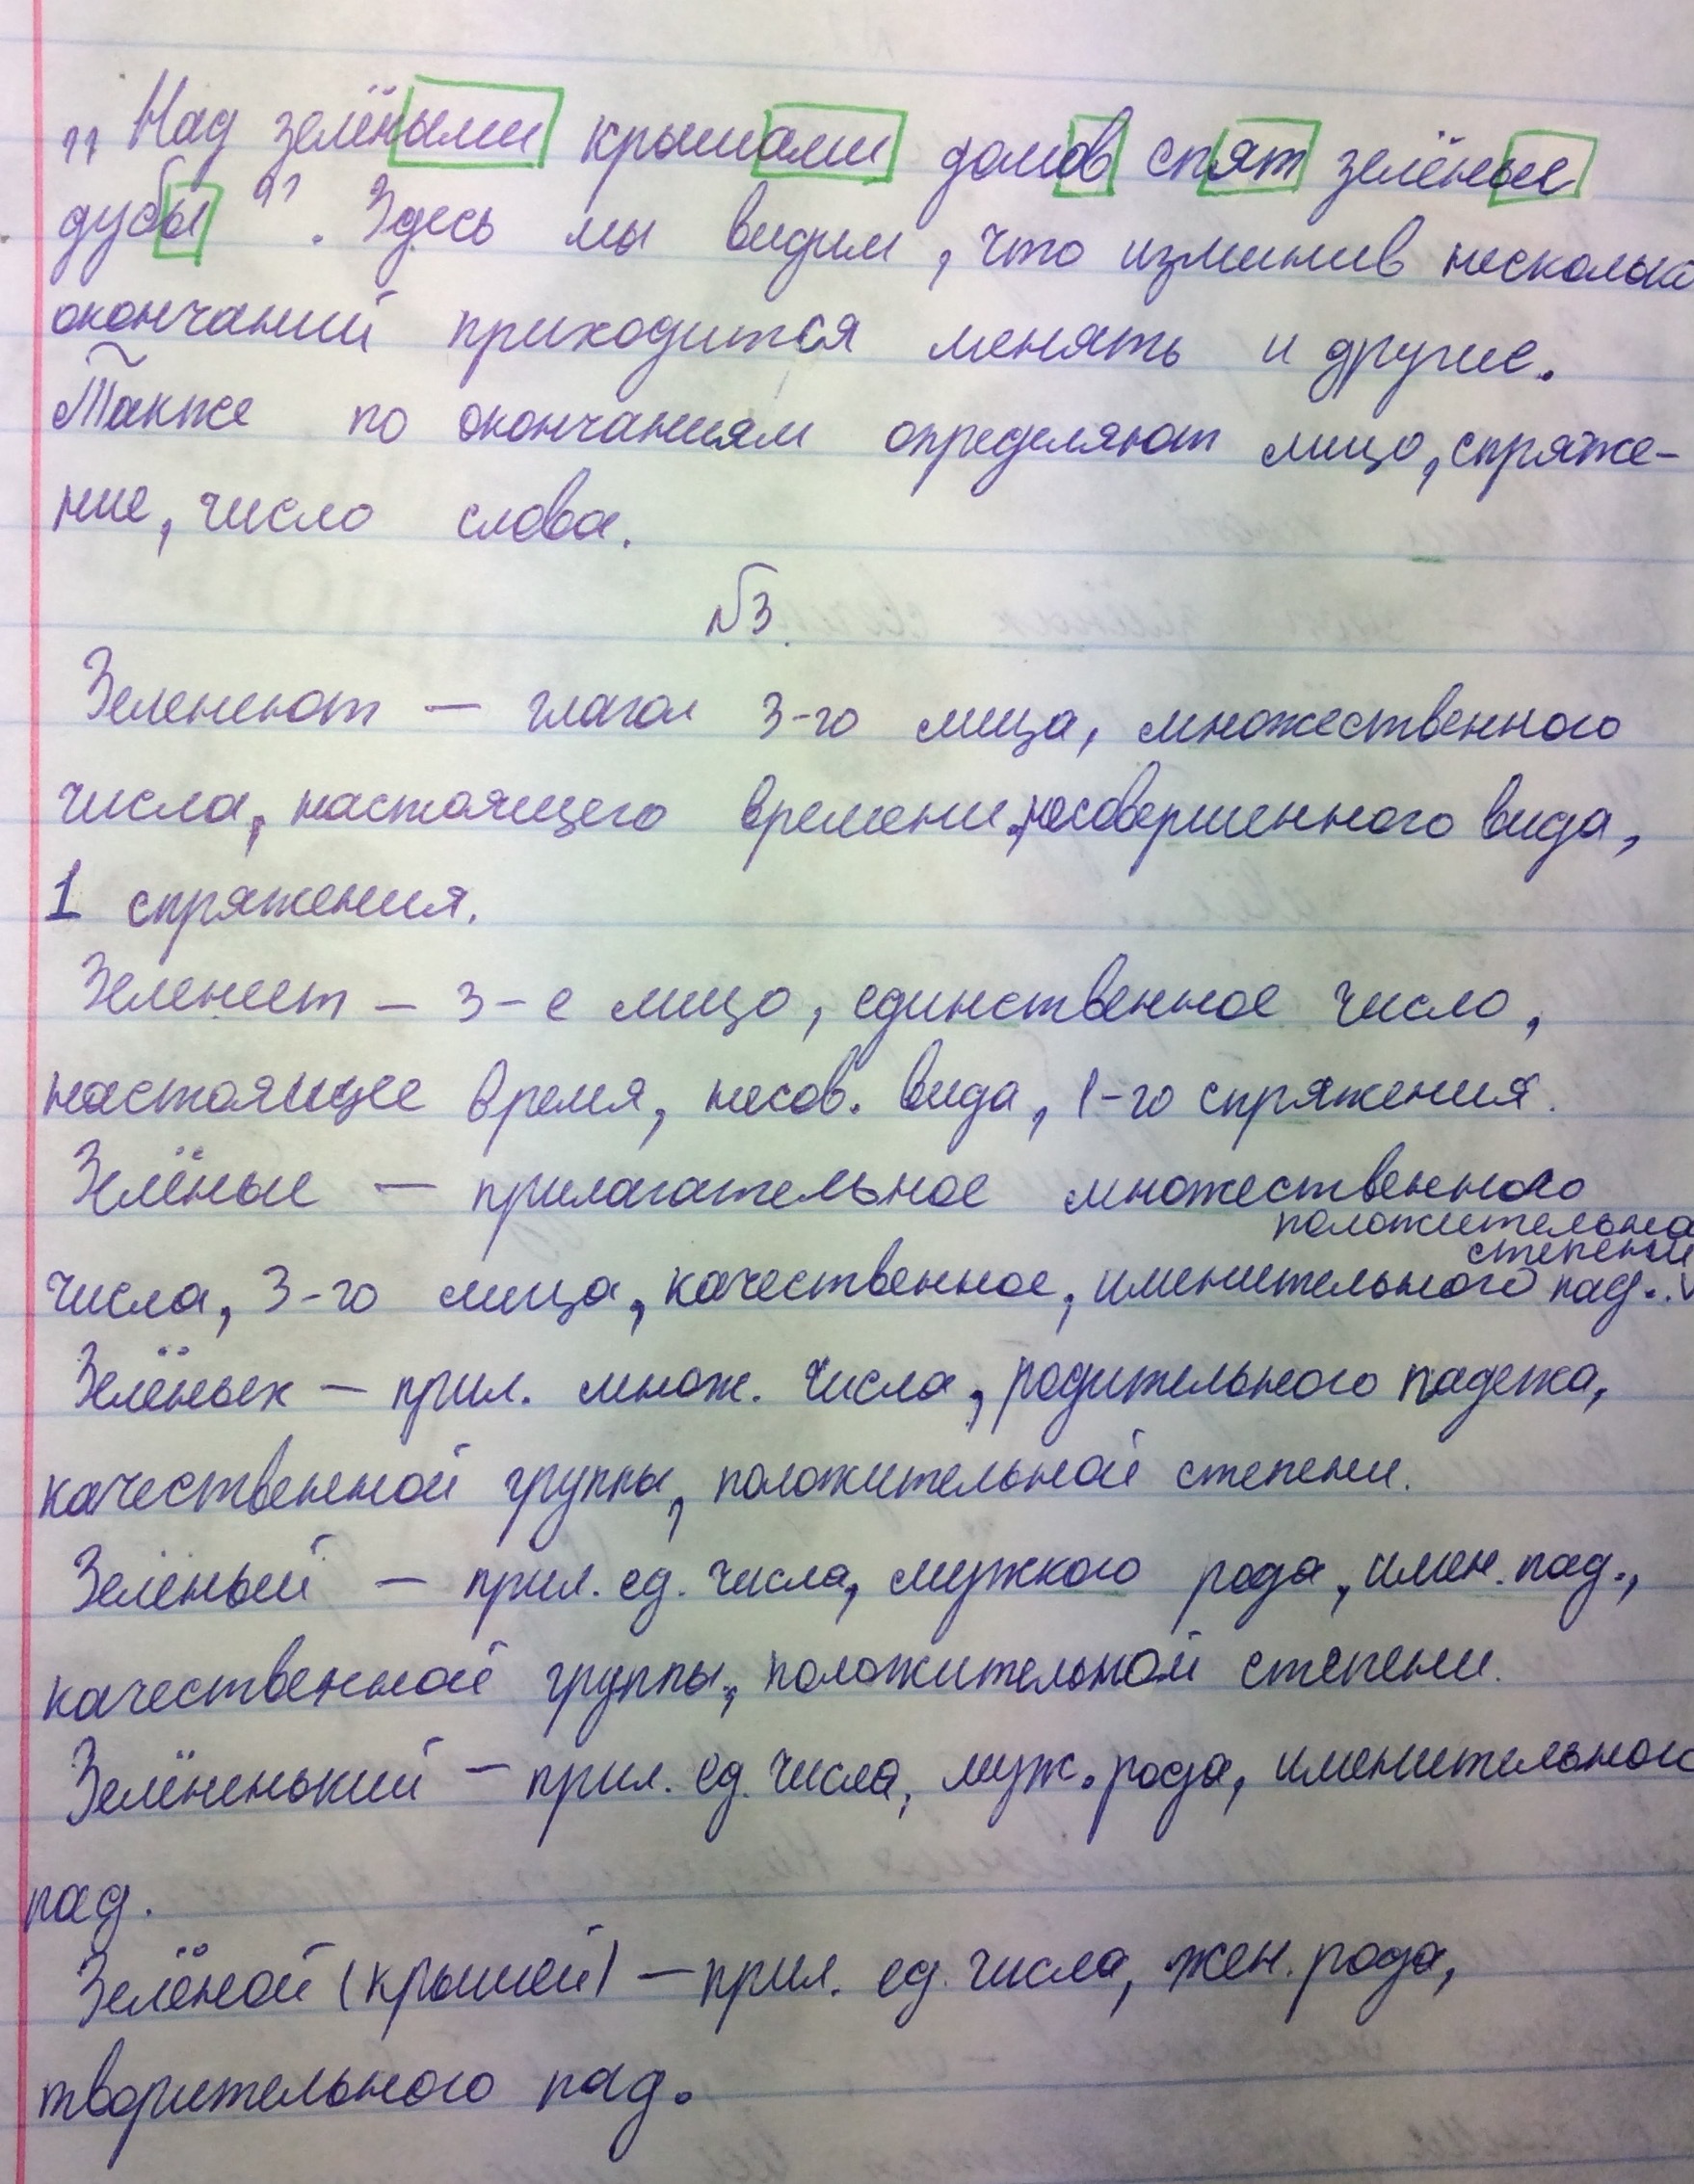 „Над зелёными крышами домов спят зелёные
дубы". Здесь мы видим, что изминив несколько
окончаний приходится менять и другие.
Также по окончаниям определяют лицо, спряже-
ние, число слова.
№3.
Зеленеют — глагол 3-го лица, множественного
числа, настоящего времени, несовершенного вида,
1 спряжения.
Зеленеет — 3-е лицо, единственное число,
настоящее время, несов. вида, 1-го спряжения.
Зелёные — прилагательное множественного
положительной
степени
числа, 3-го лица, качественное, именительного пад..
Зелёных — прил. множ. числа, родительного падежа,
качественной группы, положительной степени.
Зелёный — прил. ед. числа, мужского рода, имен. пад.,
качественной группы, положительной степени.
Зелёненький — прил. ед. числа, муж. рода, именительного
пад.
Зелёной (крышей) — прил. ед. числа, жен. рода,
творительного пад.